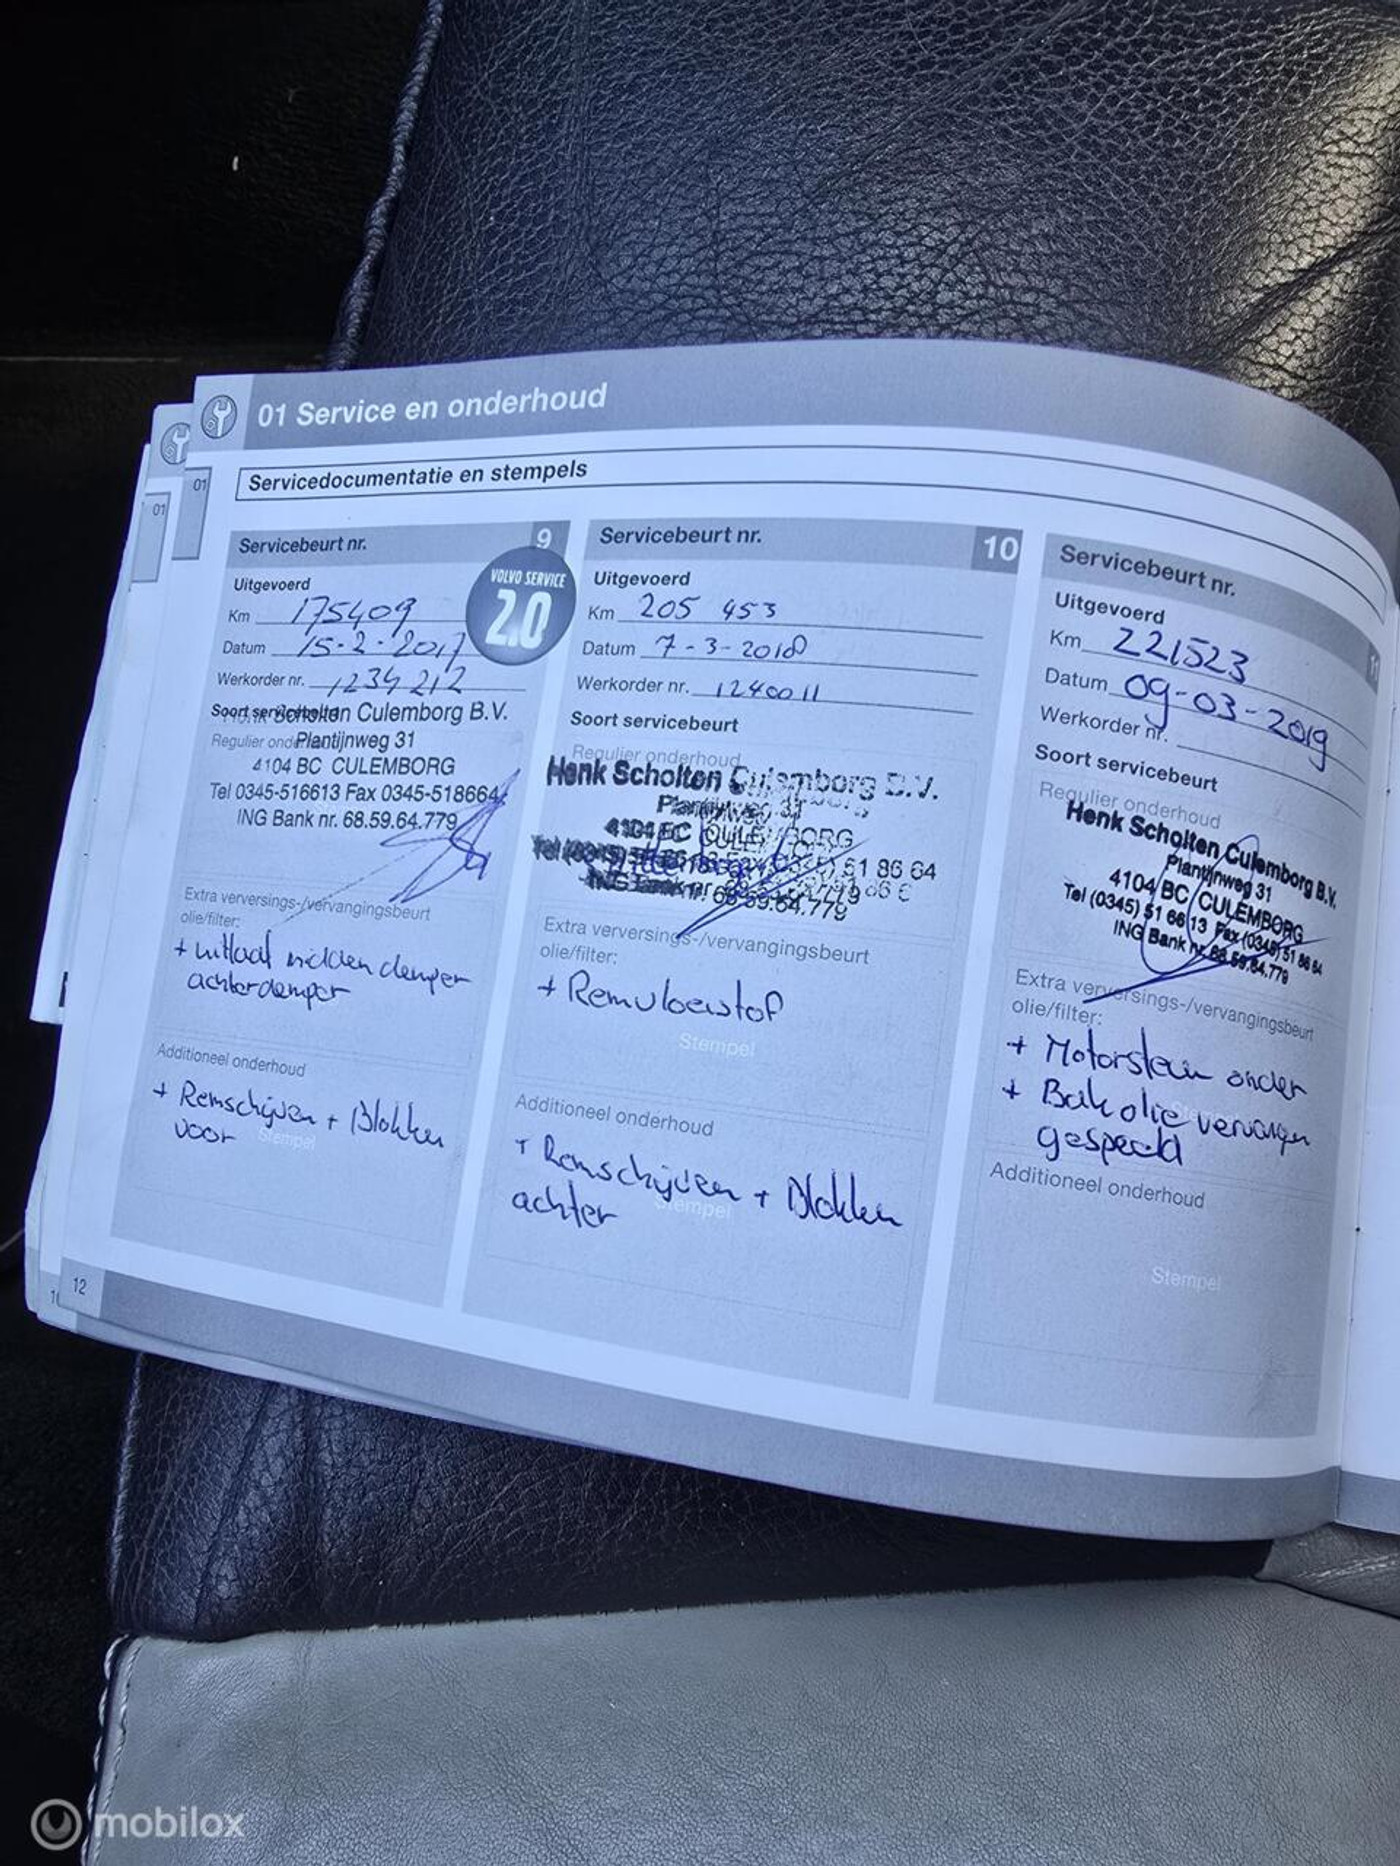 01 Service en onderhoud
01
01
Servicedocumentatie en stempels
Servicebeurt nr. 9
VOLVO SERVICE
2.0
Uitgevoerd
Km 175409
Datum 15-2-2017
Werkorder nr. 1234212
Soort servicebeurt
Scholten Culemborg B.V.
Regulier onderhoud
Plantijnweg 31
4104 BC CULEMBORG
Tel 0345-516613 Fax 0345-518664
ING Bank nr. 68.59.64.779
Extra verversings-/vervangingsbeurt
olie/filter:
+ uitlaat midden demper
achterdemper
Additioneel onderhoud
+ Remschijven + Blokken
voor
Stempel
Servicebeurt nr. 10
Uitgevoerd
Km 205 453
Datum 7-3-2018
Werkorder nr. 1240011
Soort servicebeurt
Regulier onderhoud
Henk Scholten Culemborg B.V.
Plantijnweg 31
4104 BC CULEMBORG
51 86 64
ING Bank nr. 68.59.64.779
Extra verversings-/vervangingsbeurt
olie/filter:
+ Remvloeistof
Stempel
Additioneel onderhoud
+ Remschijven + Blokken
achter
Stempel
Servicebeurt nr. 11
Uitgevoerd
Km 221523
Datum 09-03-2019
Werkorder nr.
Soort servicebeurt
Regulier onderhoud
Henk Scholten Culemborg B.V.
Plantijnweg 31
4104 BC CULEMBORG
Tel (0345) 51 66 13 Fax (0345) 51 86 64
ING Bank nr. 68.59.64.779
Extra verversings-/vervangingsbeurt
olie/filter:
+ Motorsteun onder
+ Bak olie vervangen
gespoeld
Additioneel onderhoud
Stempel
12
mobilox